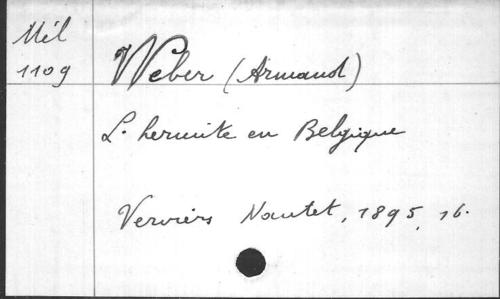 Mél
1109
Weber (Armand)
L. hermite en Belgique
Verviers Nautet, 1895, 16.